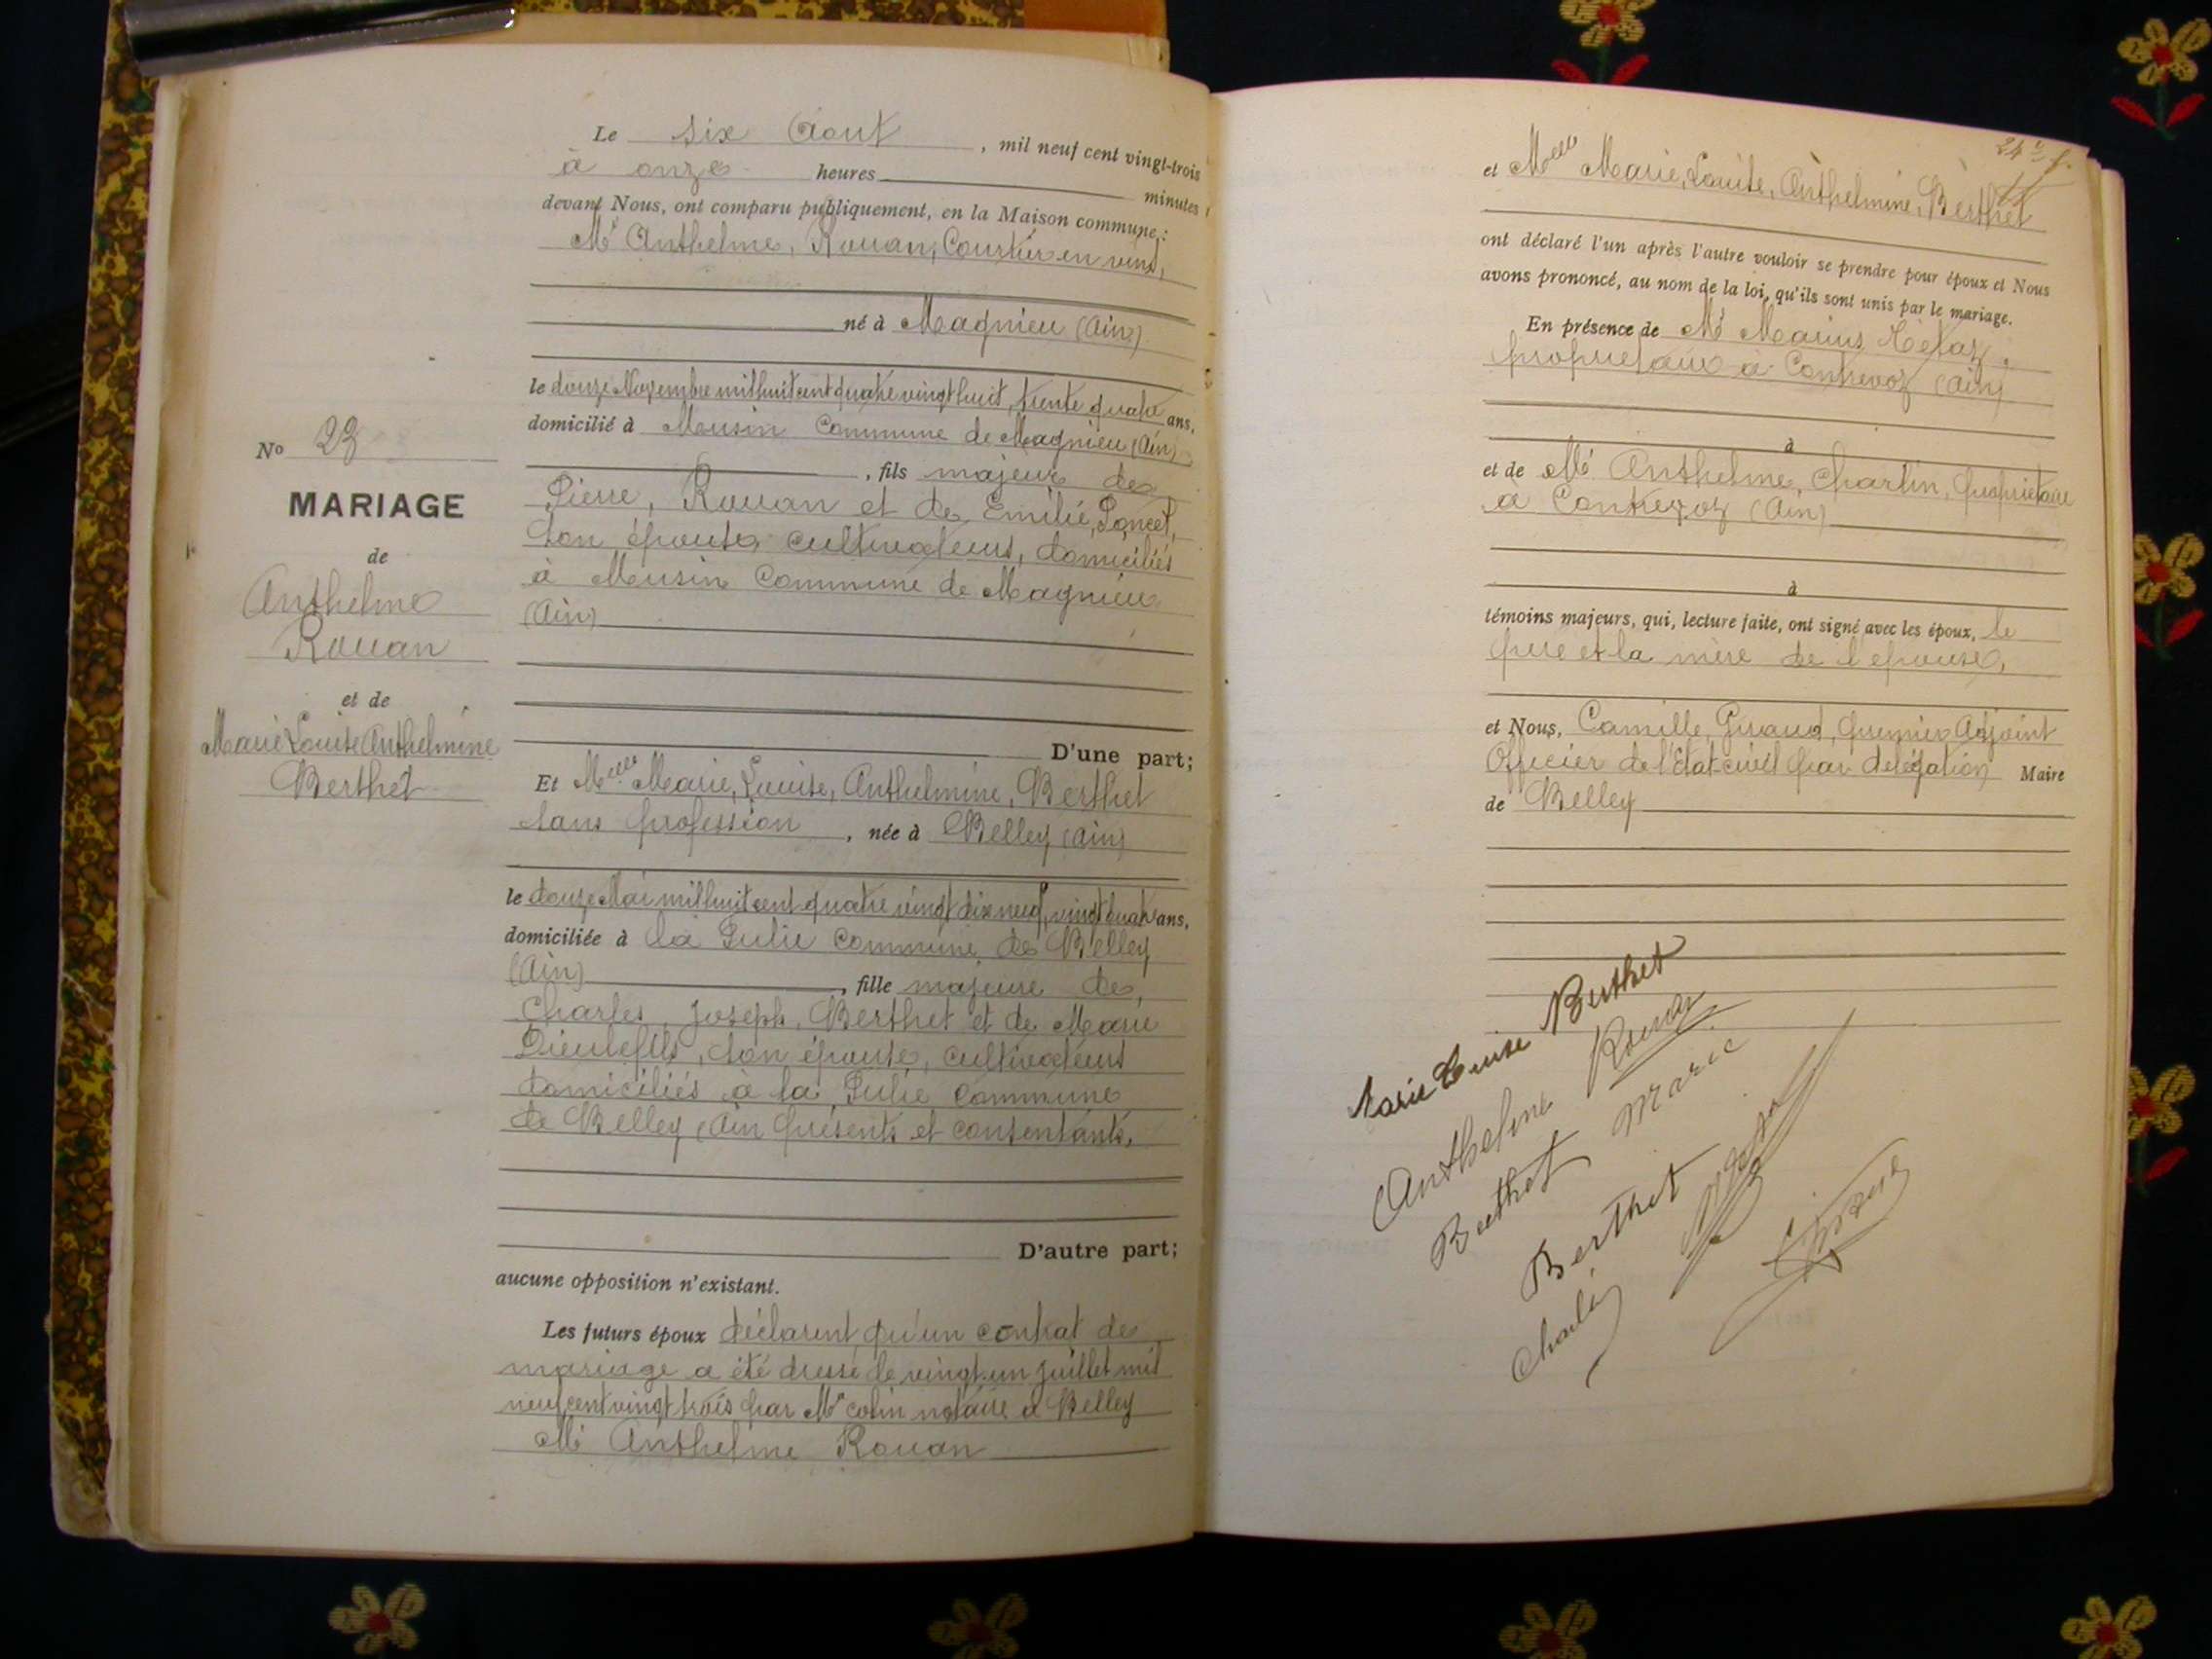 Le six Aout, mil neuf cent vingt-trois
à onze heures minutes,
devant Nous, ont comparu publiquement, en la Maison commune :
Mr Anthelme, Rouan, Courtier en vins,
né à Magnieu (Ain)
le douze Novembre mil huit cent quatre vingt huit, trente quatre ans,
domicilié à Musin Commune de Magnieu (Ain)
, fils majeur de
Pierre, Rouan et de Emilie, Poncet,
son épouse, cultivateurs, domiciliés
à Musin Commune de Magnieu
(Ain)
D'une part;
No 23
MARIAGE
de
Anthelme
Rouan
et de
Marie Louise Anthelmine
Berthet
Et Melle Marie, Louise, Anthelmine, Berthet
sans profession, née à Belley (Ain)
le douze Mai mil huit cent quatre vingt dix neuf, vingt quatre ans,
domiciliée à la Julie commune de Belley
(Ain), fille majeure de,
Charles, Joseph, Berthet et de Marie
Dieulefils, son épouse, cultivateurs
domiciliés à la Julie commune
de Belley (Ain présents et consentants,
D'autre part;
aucune opposition n'existant.
Les futurs époux déclarent qu'un contrat de
mariage a été dressé le vingt un juillet mil
neuf cent vingt trois par Me colin notaire à Belley
Mr Anthelme Rouan
24e f.
et Melle Marie, Louise, Anthelmine, Berthet
ont déclaré l'un après l'autre vouloir se prendre pour époux et Nous
avons prononcé, au nom de la loi, qu'ils sont unis par le mariage.
En présence de Mr Marius
proprietaire à Contrevoz (Ain)
à
et de Mr Anthelme, Charlin, propriétaire
a Contrevoz (Ain)
à
témoins majeurs, qui, lecture faite, ont signé avec les époux, le
père et la mère de l'epouse,
et Nous, Camille, Giraud, premier Adjoint
Officier de l'Etat-civil par delégation Maire
de Belley
Marie Louise Berthet
Anthelme Rouan
Berthet Marie
Berthet
Charlin